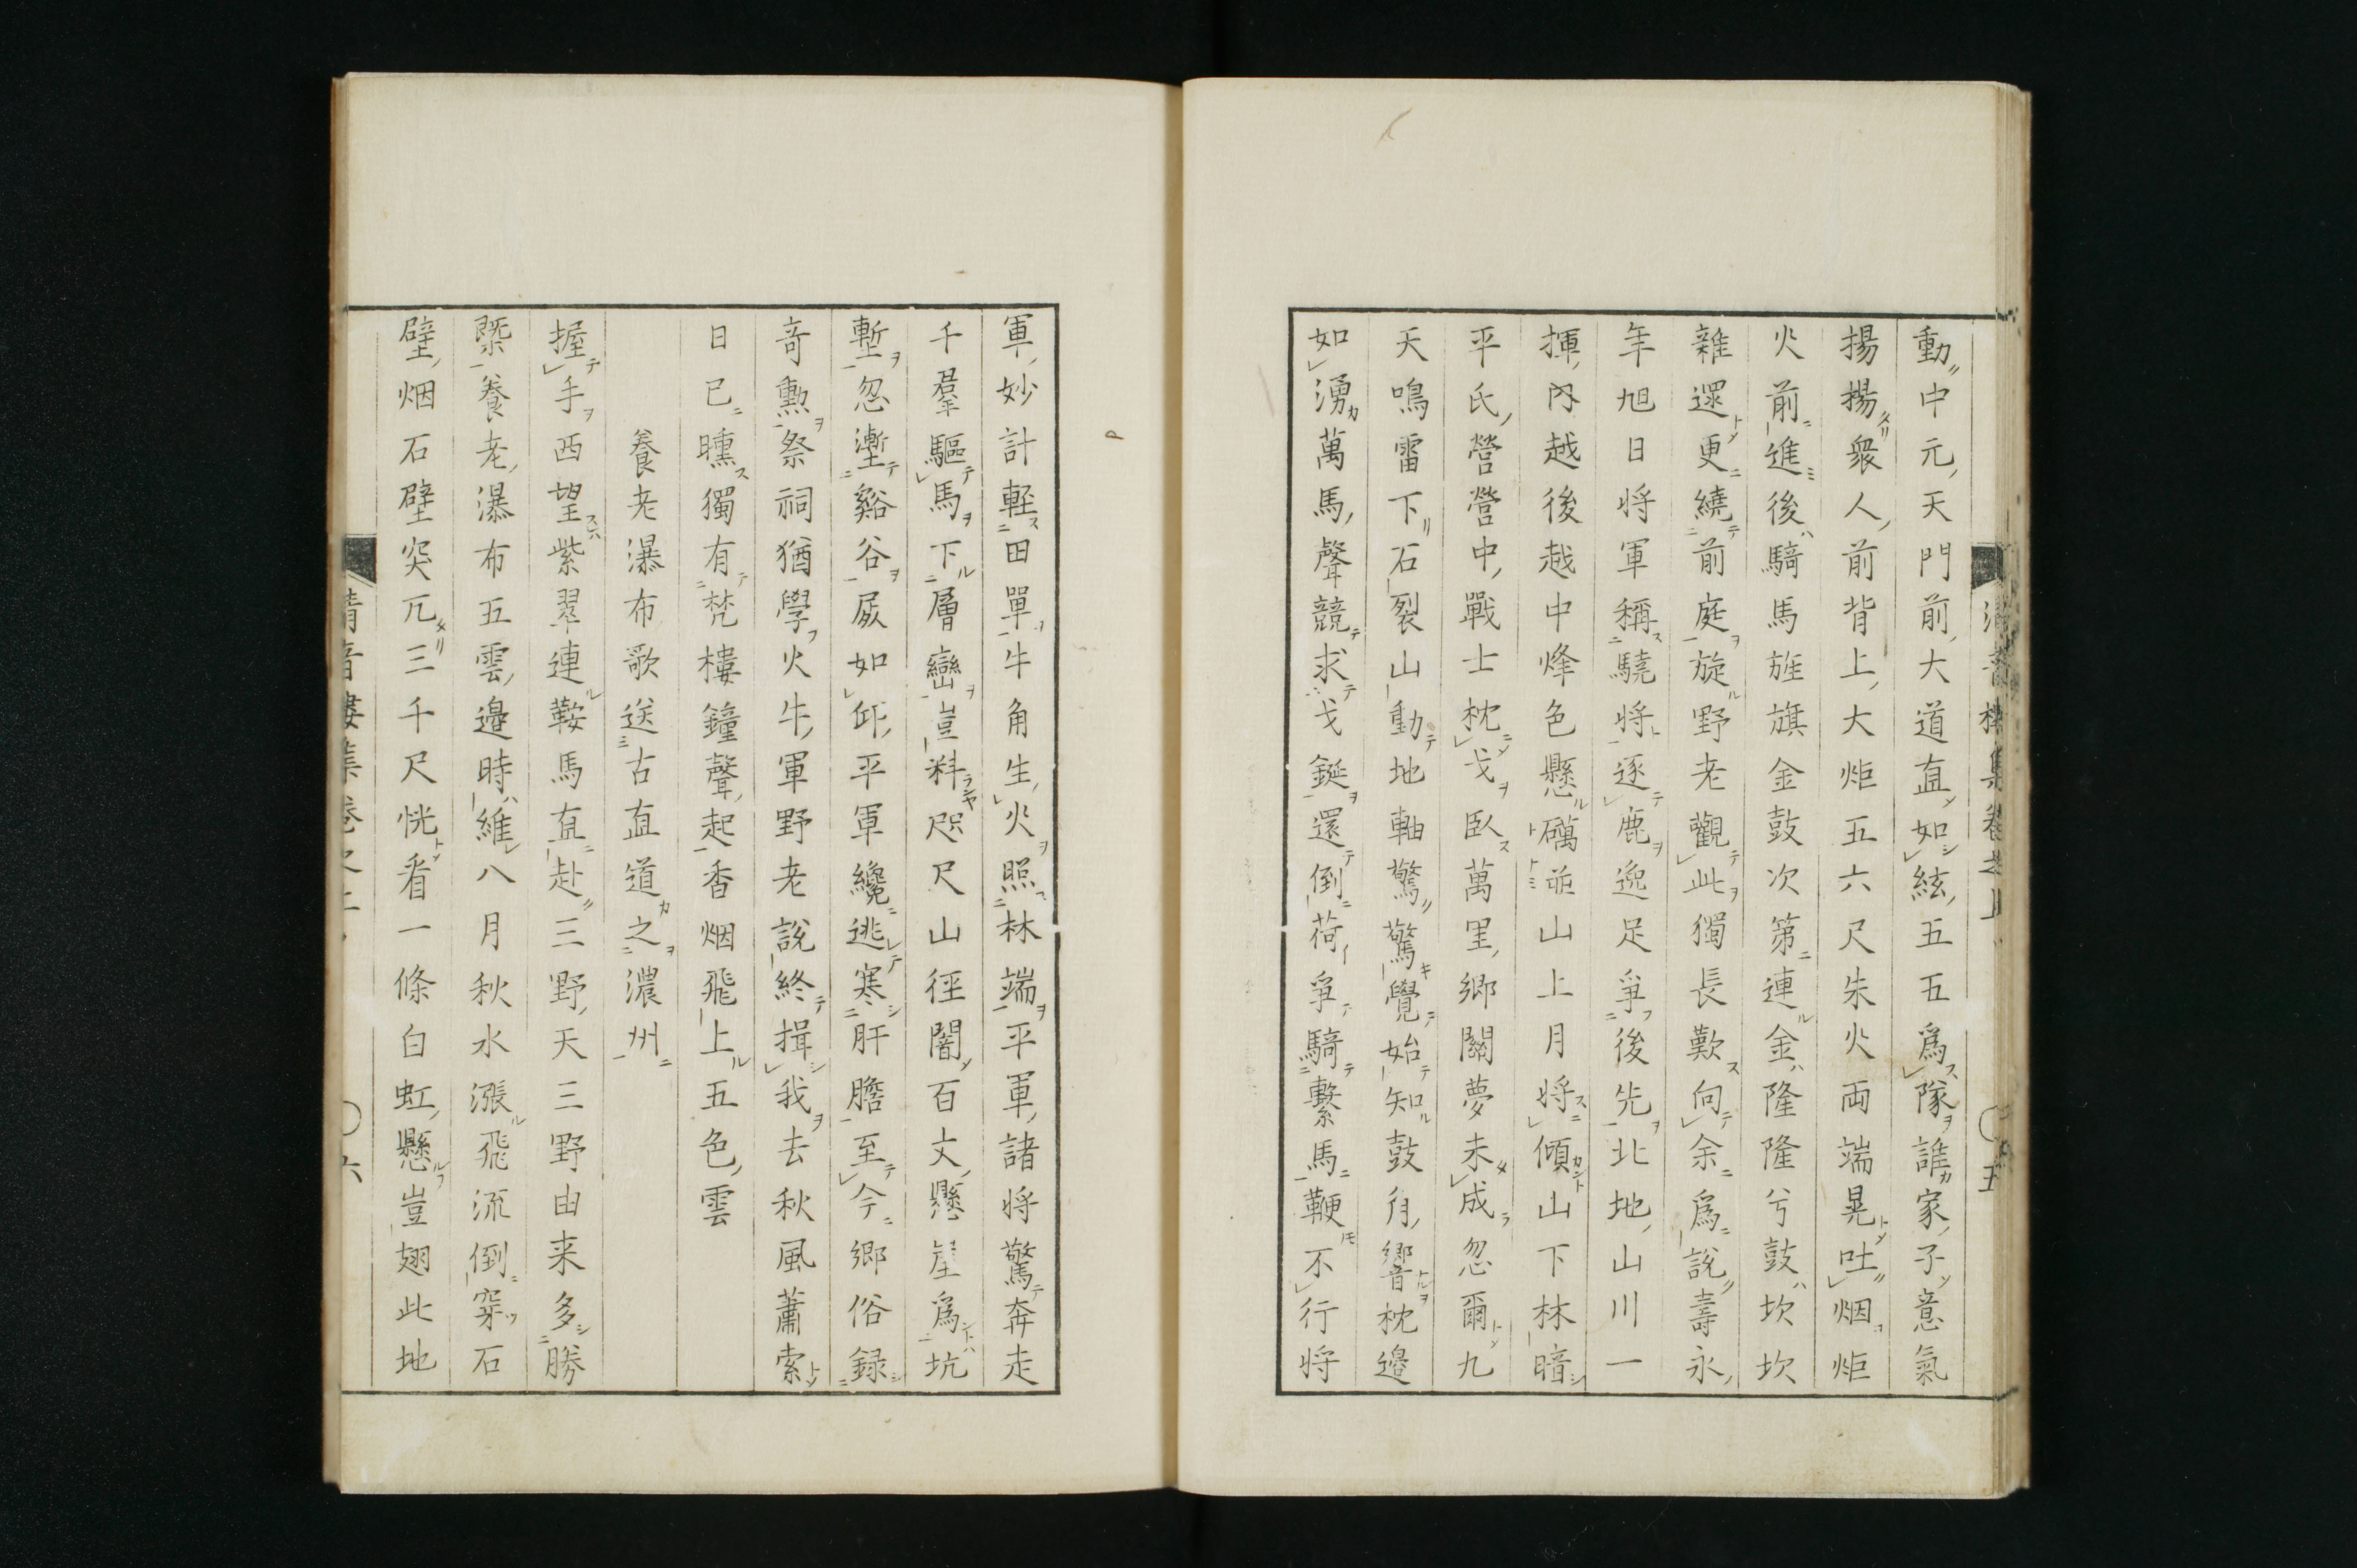 清音樓集卷之上 〇五
動中元天門前大道直如絃五五爲隊誰家子意氣
揚揚衆人前背上大炬五六尺朱火両端晃吐烟炬
火前進後騎馬旌旗金鼓次第連金隆隆兮鼓坎坎
雜還更繞前庭旋野老觀此獨長歎向余爲說壽永
年旭日将軍稱驍将逐鹿逸足爭後先北地山川一
揮内越後越中烽色懸礪並山上月将傾山下林暗
平氏營營中戰士枕戈臥萬里鄉關夢未成忽爾九
天鳴雷下石裂山動地軸驚驚覺始知鼓角響枕邊
如湧萬馬聲競求戈鋋還倒荷爭騎繫馬鞭不行将
軍妙計軽田單牛角生火照林端平軍諸将驚奔走
千羣驅馬下層巒豈料咫尺山徑闇百丈懸崖爲坑
塹忽壍谿谷屍如邱平軍纔逃寒肝膽至今鄉俗録
奇勲祭祠猶學火牛軍野老說終揖我去秋風蕭索
日已曛獨有梵樓鐘聲起香烟飛上五色雲
養老瀑布歌送古直道之濃州
握手西望紫翠連鞍馬直赴三野天三野由来多勝
槩養老瀑布五雲邉時維八月秋水漲飛流倒穿石
壁烟石壁突兀三千尺恍看一條白虹懸豈翅此地
清音樓集卷之上 〇六